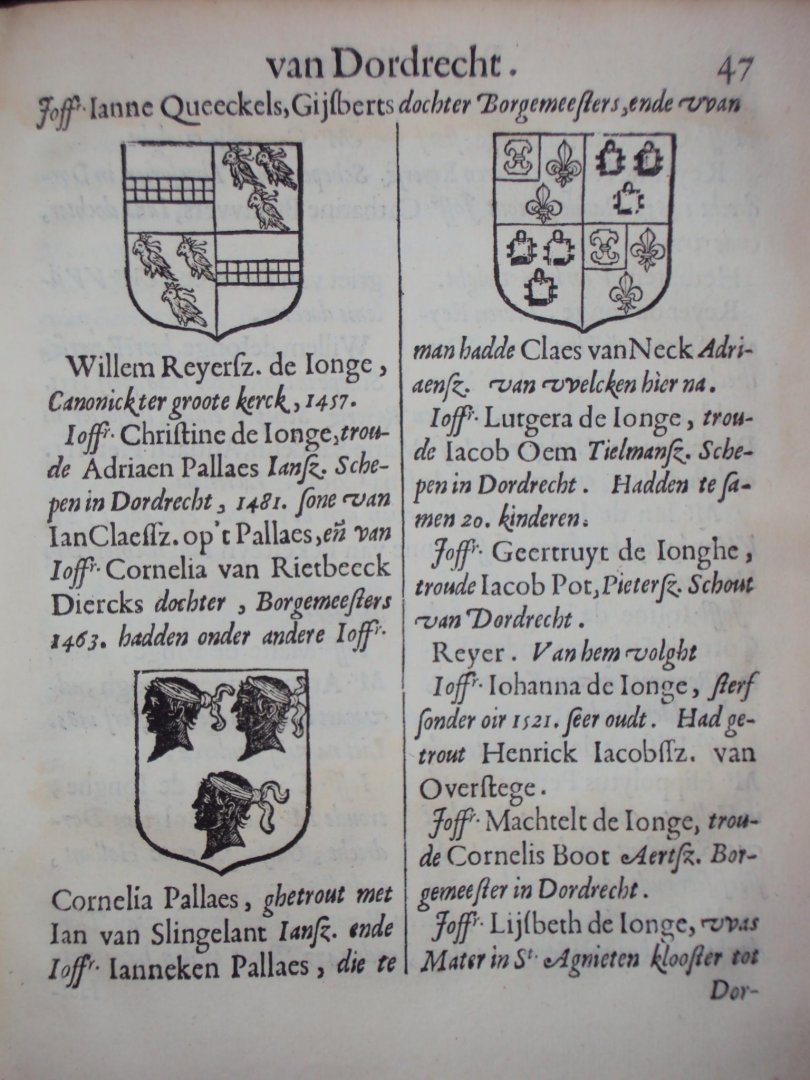 van Dordrecht. 47
Joffr. Ianne Queeckels, Gijſberts dochter Borgemeeſters, ende vvan
Willem Reyerſz. de Ionge,
Canonickter groote kerck, 1457.
Ioffr. Chriſtine de Ionge, trou-
de Adriaen Pallaes Ianſz. Sche-
pen in Dordrecht, 1481. ſone van
Ian Claeſſz. op't Pallaes, en̄ van
Ioffr. Cornelia van Rietbeeck
Diercks dochter, Borgemeeſters
1463. hadden onder andere Ioffr.
Cornelia Pallaes, ghetrout met
Ian van Slingelant Ianſz. ende
Ioffr. Ianneken Pallaes, die te
man hadde Claes van Neck Adri-
aenſz. van vvelcken hier na.
Ioffr. Lutgera de Ionge, trou-
de Iacob Oem Tielmanſz. Sche-
pen in Dordrecht. Hadden te ſa-
men 20. kinderen.
Joffr. Geertruyt de Ionghe,
troude Iacob Pot, Pieterſz. Schout
van Dordrecht.
Reyer. Van hem volght
Ioffr. Iohanna de Ionge, ſterf
ſonder oir 1521. ſeer oudt. Had ge-
trout Henrick Iacobſſz. van
Overſtege.
Joffr. Machtelt de Ionge, trou-
de Cornelis Boot Aertſz. Bor-
gemeeſter in Dordrecht.
Joffr. Lijſbeth de Ionge, vvas
Mater in St. Agnieten klooſter tot
Dor-